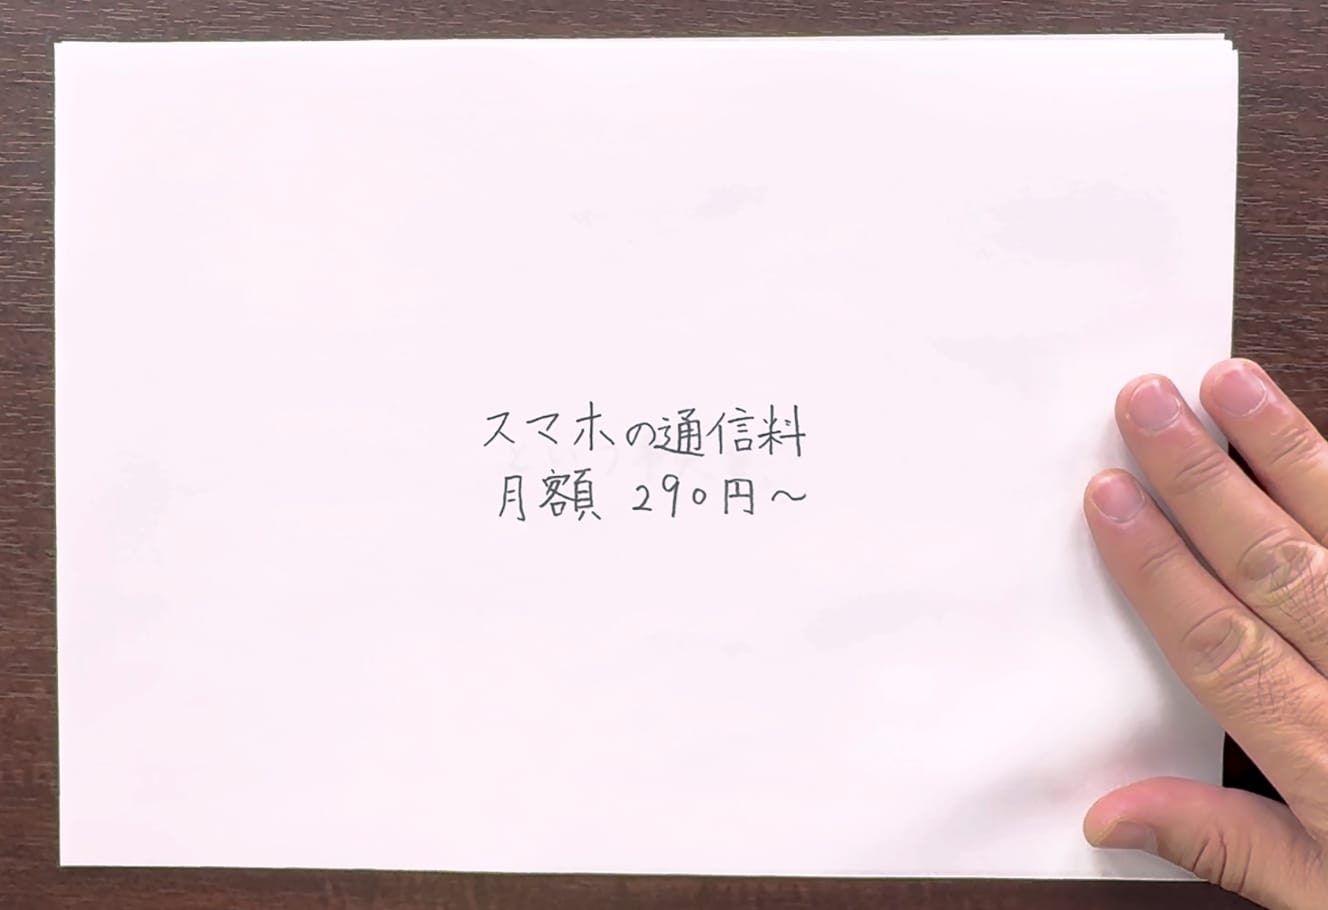 スマホの通信料
月額 290円〜